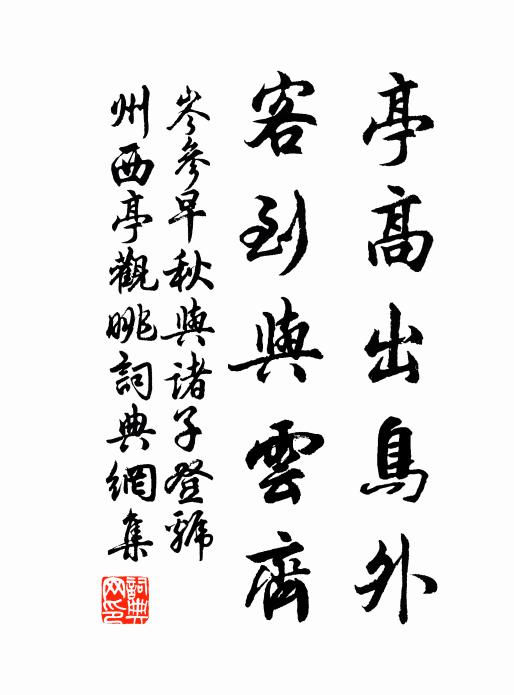 亭高出鳥外
客到與雲齊
岑參早秋與諸子登虢
州西亭觀眺詞典網集
詞典網印